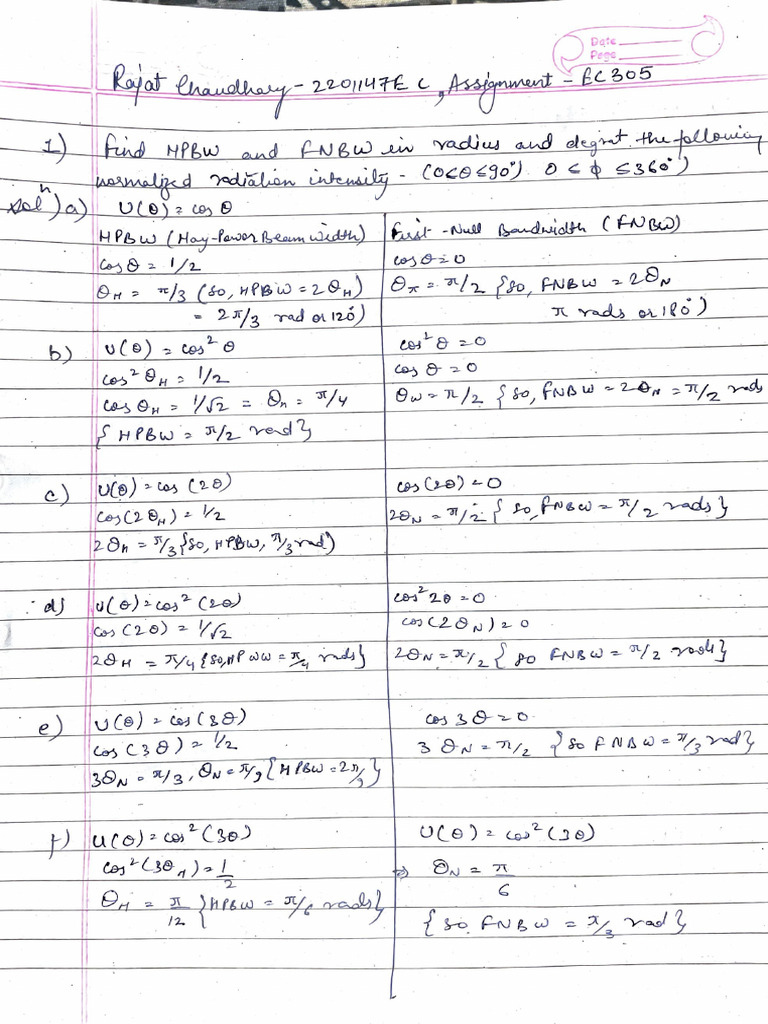 Date
Page
Rajat Chaudhary - 2201147EC, Assignment - EC305
1) Find HPBW and FNBW in radius and degrat the following
normalized radiation intensity - (0<θ≤90°) 0 ≤ ϕ ≤ 360°)
solⁿ) a) U(θ) = cos θ
HPBW (Hay-Power Beam width)
cos θ = 1/2
θH = π/3 (so, HPBW = 2θH)
= 2π/3 rad or 120°)
First-Null Bandwidth (FNBW)
cos θ = 0
θπ = π/2 {so, FNBW = 2θN
π rads or 180°)
b) U(θ) = cos² θ
cos² θH = 1/2
cos θH = 1/√2 = θn = π/4
{HPBW = π/2 rad}
cos² θ = 0
cos θ = 0
θW = π/2 {so, FNBW = 2θN = π/2 rads
c) U(θ) = cos (2θ)
cos(2θH) = 1/2
2θH = π/3 {so, HPBW, π/3 rad)
cos(2θ) = 0
2θN = π/2 {so, FNBW = π/2 rads}
d) U(θ) = cos² (2θ)
cos (2θ) = 1/√2
2θH = π/4 {so, HPWW = π/4 rads}
cos² 2θ = 0
cos(2θN) = 0
2θN = π/2 {so FNBW = π/2 rads}
e) U(θ) = cos (3θ)
cos (3θ) = 1/2
3θN = π/3, θN = π/9 {HPBW = 2π/9}
cos 3θ = 0
3θN = π/2 {so FNBW = π/3 rad}
f) U(θ) = cos² (3θ)
cos² (3θH) = 1/2
θH = π/12 {HPBW = π/6 rads}
U(θ) = cos² (3θ)
⇒ θN = π/6
{so FNBW = π/3 rad}